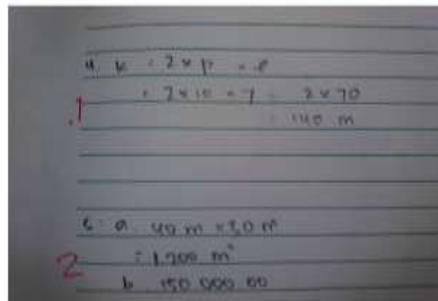 4. k = 2 x p = l
= 2 x 10 = 7 = 2 x 70
.1 = 140 m
6. a 40 m x 30 m
= 1.200 m²
2
b 150 000 00